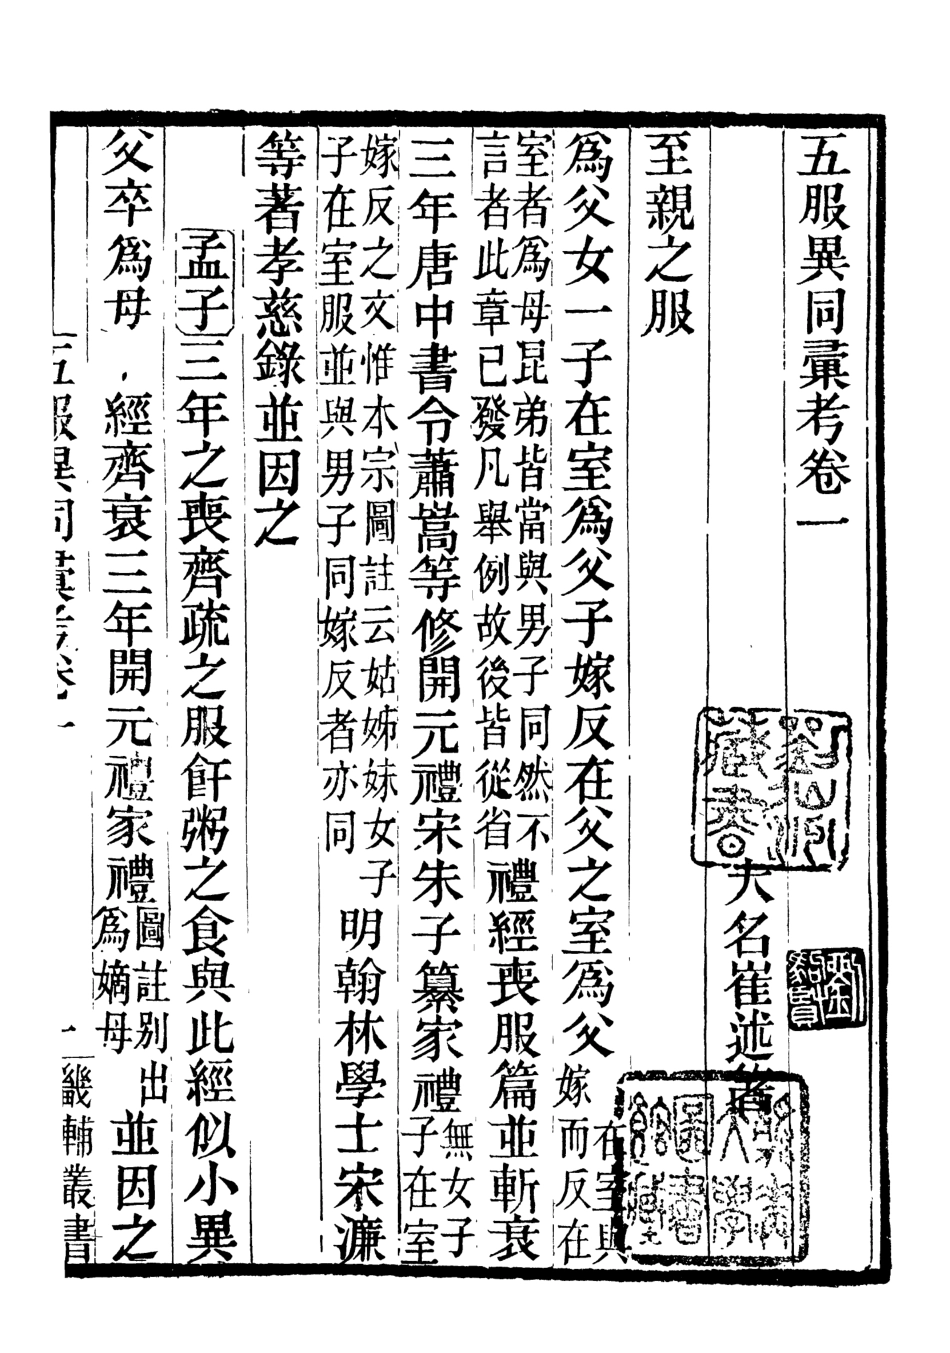 五服異同彙考卷一
大名崔述著
至親之服
爲父女一子在室爲父子嫁反在父之室爲父在室與嫁而反在
室者爲母昆弟皆當與男子同然不言者此章已發凡舉例故後皆從省禮經喪服篇並斬衰
三年唐中書令蕭嵩等修開元禮宋朱子纂家禮無女子子在室
嫁反之文惟本宗圖註云姑姊妹女子子在室服並與男子同嫁反者亦同明翰林學士宋濂
等著孝慈錄並因之
孟子三年之喪齊疏之服飦粥之食與此經似小異
父卒爲母 經齊衰三年開元禮家禮圖註別出爲嫡母並因之
五服異同彙考卷一 一 畿輔叢書